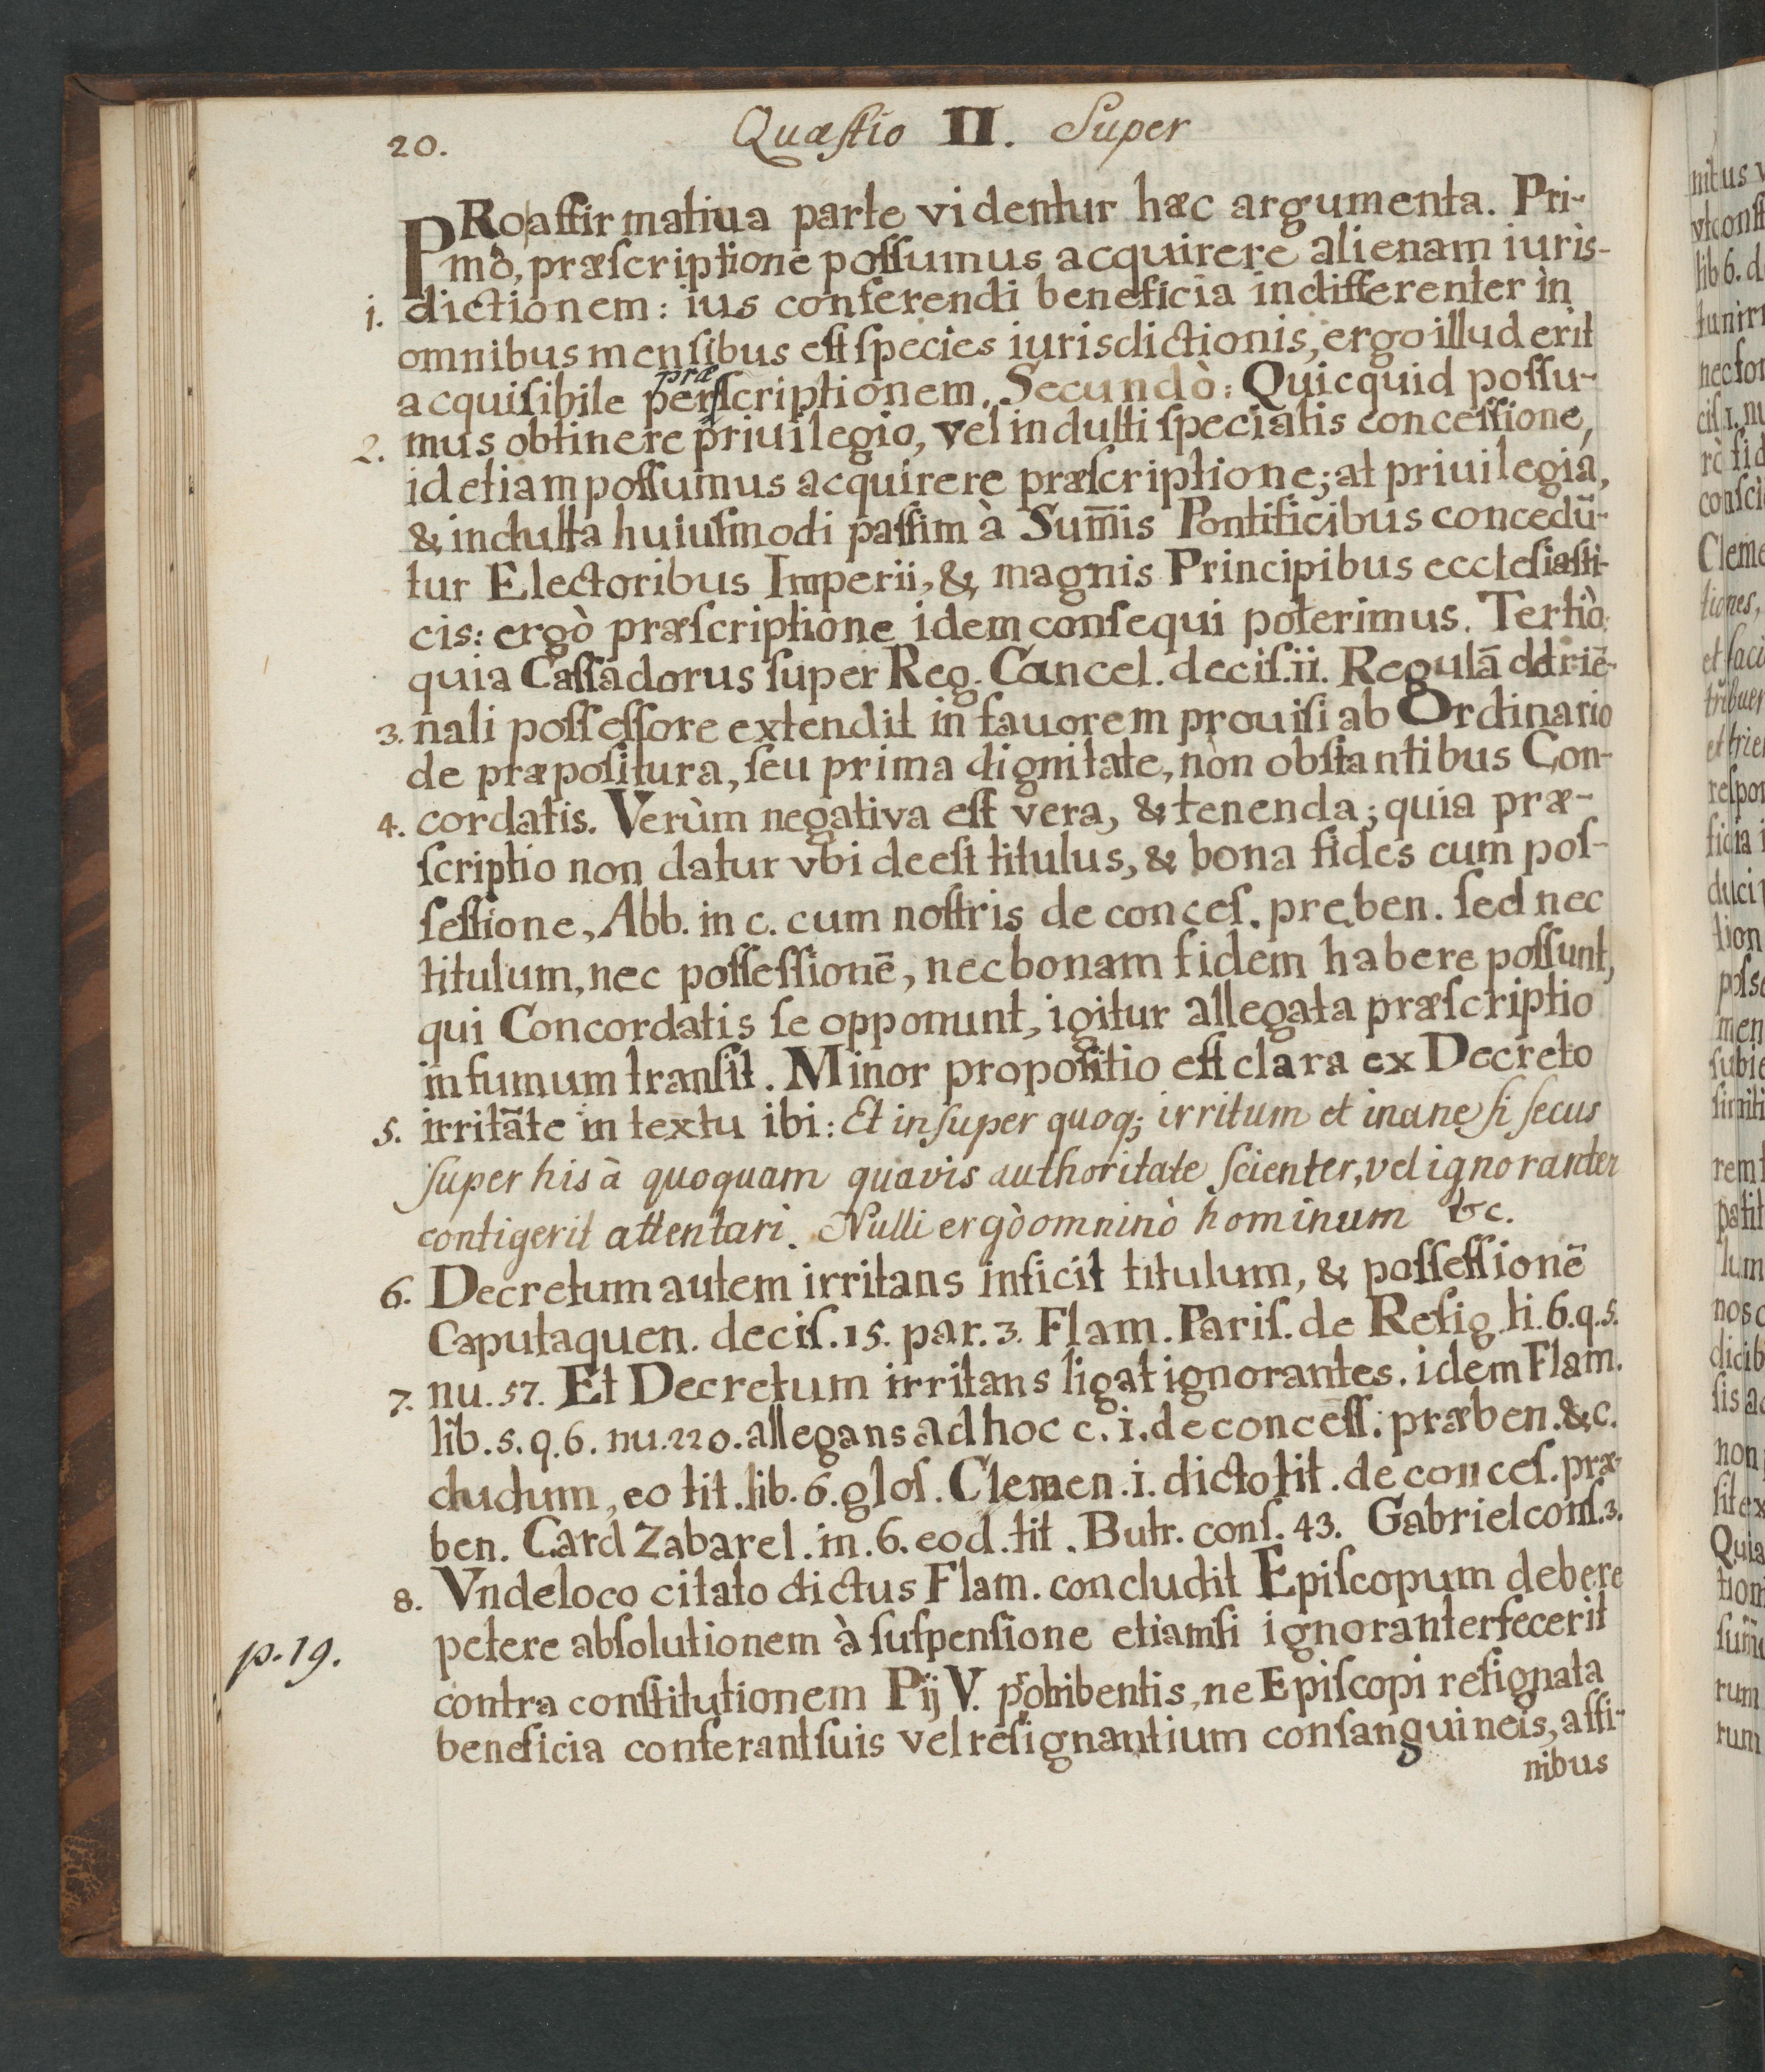 20.
Quæſtio II. Super
PRo affirmatiua parte videntur hæc argumenta. Pri-
mò, præſcriptione poſſumus acquirere alienam iuris-
1. dictionem: ius conferendi beneficia indifferenter in
omnibus menſibus eſt ſpecies iurisdictionis, ergo illud erit
præ
acquiſibile perſcriptionem. Secundò: Quicquid poſſu-
2. mus obtinere priuilegio, vel indulti ſpecialis conceſſione,
id etiam poſſumus acquirere præſcriptione; at priuilegia,
& indulta huiuſmodi paſſim à Sum̄is Pontificibus concedū-
tur Electoribus Imperii, & magnis Principibus eccleſiaſti-
cis: ergò præſcriptione idem conſequi poterimus. Tertiò:
quia Caſſadorus ſuper Reg. Cancel. deciſ. ii. Regulā d triē-
3. nali poſſeſſore extendit in fauorem prouiſi ab Ordinario
de præpoſitura, ſeu prima dignitate, non obſtantibus Con-
4. cordatis. Verùm negativa eſt vera, & tenenda; quia præ-
ſcriptio non datur vbi deeſt titulus, & bona fides cum poſ-
ſeſſione, Abb. in c. cum noſtris de conceſ. preben. ſed nec
titulum, nec poſſeſſionē, nec bonam fidem habere poſſunt,
qui Concordatis ſe opponunt, igitur allegata præſcriptio
in fumum tranſit. Minor propoſitio eſt clara ex Decreto
5. irritāte in textu ibi: Et inſuper quoq; irritum et inane ſi ſecus
ſuper his à quoquam quavis authoritate ſcienter, vel ignoranter
contigerit attentari. Nulli ergò omninò hominum &c.
6. Decretum autem irritans inficit titulum, & poſſeſſionē
Caputaquen. deciſ. 15. par. 3. Flam. Pariſ. de Reſig. li. 6. q. 5.
7. nu. 57. Et Decretum irritans ligat ignorantes. idem Flam.
lib. 5. q. 6. nu. 220. allegans ad hoc c. i. de conceſſ. præben. & c.
dudum, eo tit. lib. 6. gloſ. Clemen. i. dicto tit. de conceſ. præ-
ben. Card Zabarel. in. 6. eod. tit. Butr. conſ. 43. Gabriel conſ. 3.
8. Vnde loco citato dictus Flam. concludit Epiſcopum debere
petere abſolutionem à ſuſpenſione etiamſi ignoranter fecerit
p. 19.
contra conſtitutionem Pij V. prohibentis, ne Epiſcopi reſignata
beneficia conferant ſuis vel reſignantium conſanguineis, affi-
nibus